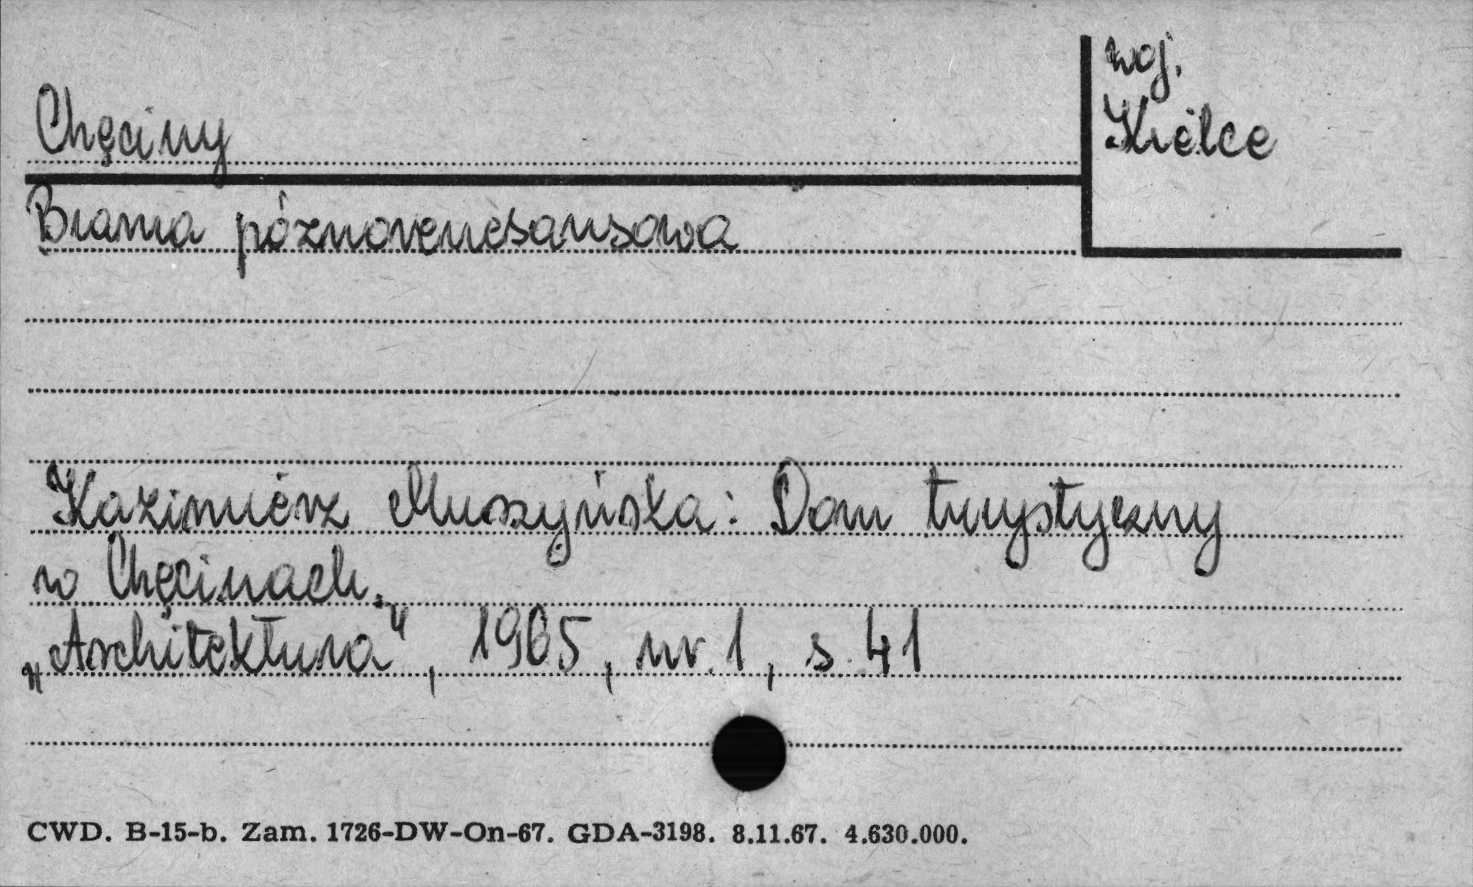 woj.
Kielce
Chęciny
Brama póznorenesansowa
Kazimierz Muszyńska: Dom turystyczny
w Chęcinach.
„Architektura", 1965, nr. 1, s. 41
CWD. B-15-b. Zam. 1726-DW-On-67. GDA-3198. 8.11.67. 4.630.000.